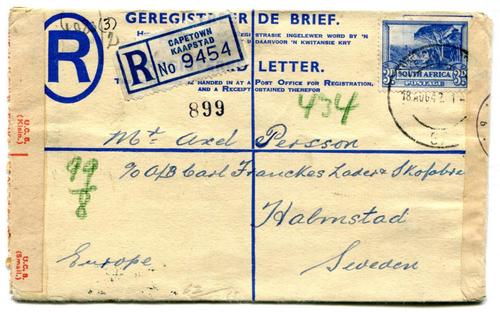 (3)
GEREGISTREERDE BRIEF.
REGISTRASIE INGELEWER WORD BY 'N
DAARVOOR 'N KWITANSIE KRY
R
CAPETOWN
KAAPSTAD
R No 9454
LETTER.
HANDED IN AT A POST OFFICE FOR REGISTRATION,
AND A RECEIPT OBTAINED THEREFOR
3D SOUTH AFRICA 3D
POSTAGE
18 AUG 42
899
434
Mr Axel Persson
c/o A/B Carl Franckes Läder & Skofabr
99/8
Halmstad
Europe
Sweden
U.C.S.
(Klein.)
U.C.S.
(Small.)